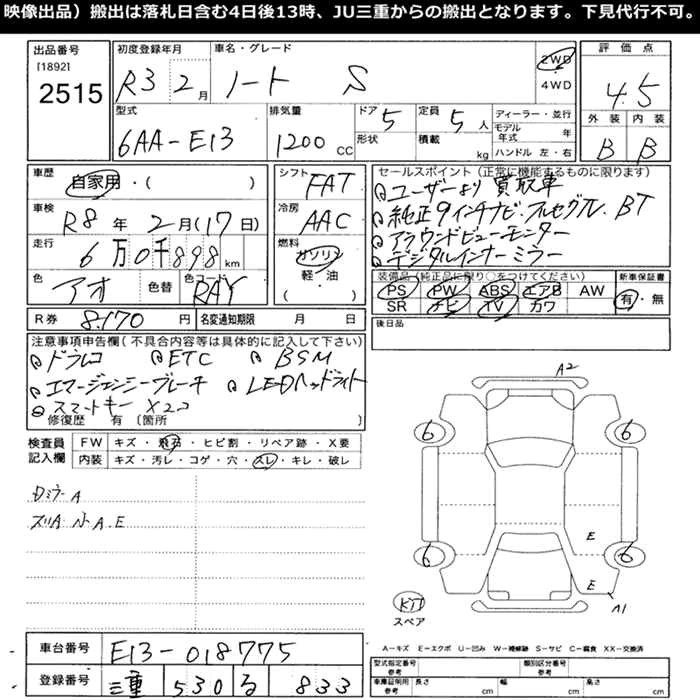 映像出品）搬出は落札日含む4日後13時、JU三重からの搬出となります。下見代行不可。
出品番号
[1892]
2515
初度登録年月
R3 2月
車名・グレード
ノート S
2WD
4WD
評価点
4.5
型式
6AA-E13
排気量
1200 CC
ドア
5
形状
定員
5人
積載
kg
ディーラー・並行
モデル年式 年
ハンドル 左・右
外装 内装
B B
車歴
自家用・( )
車検
R8年2月(17日)
走行
6万0千898km
色
アオ
色替
色コード
RAY
シフト
FAT
冷房
AAC
燃料
ガソリン
軽・油
( )
セールスポイント（正常に機能するものに限ります）
ユーザーより買取車
純正9インチナビ フルセグTV. BT
アラウンドビューモニター
デジタルインナーミラー
装備品（純正品に限り○をつけてください）
PS PW ABS エアB AW
SR ナビ TV カワ
新車保証書
有・無
R券 8.170円
名変通知期限 月 日
後日品
注意事項申告欄（不具合内容等は具体的に記入して下さい）
ドラレコ ETC BSM
エマージェンシーブレーキ LEDヘッドライト
スマートキー×2コ
修復歴 有〔箇所 〕
検査員記入欄
FW キズ・飛石・ヒビ割・リペア跡・X要
内装 キズ・汚レ・コゲ・穴・スレ・キレ・破レ
A2
6 6
6 6
E
E
A1
スペア
A－キズ E－エクボ U－凹み W－補修跡 S－サビ C－腐食 XX－交換済
車台番号 E13-018775
登録番号 三重 530 る 833
型式指定番号 参考
類別区分番号 参考
車庫証明用 参考
長さ cm
幅 cm
高さ cm